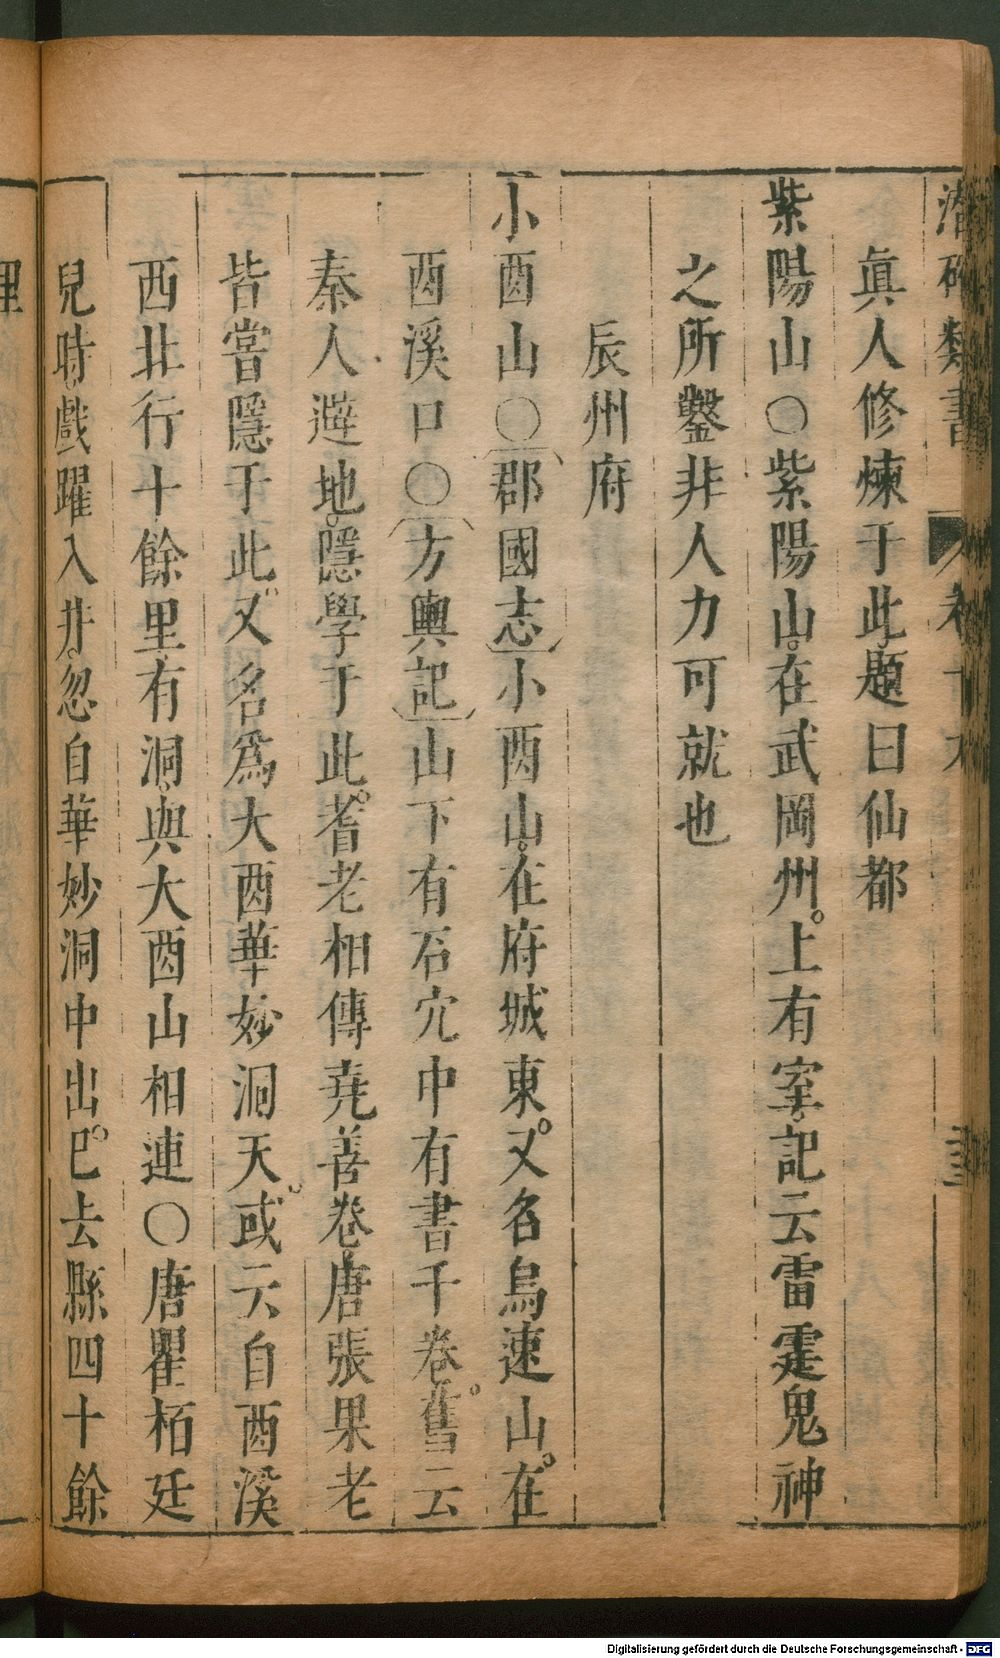 潛確類書 卷十六 三三
眞人修煉于此題曰仙都
紫陽山○紫陽山在武岡州上有室記云雷霆鬼神
之所鑿非人力可就也
辰州府
小酉山○郡國志小酉山在府城東又名烏速山在
酉溪口○方輿記山下有石穴中有書千卷舊云
秦人避地隱學于此耆老相傳堯善卷唐張果老
皆嘗隱于此又名爲大酉華妙洞天或云自酉溪
西北行十餘里有洞與大酉山相連○唐瞿栢廷
兒時戲躍入井忽自華妙洞中出巳去縣四十餘
里
Digitalisierung gefördert durch die Deutsche Forschungsgemeinschaft - DFG